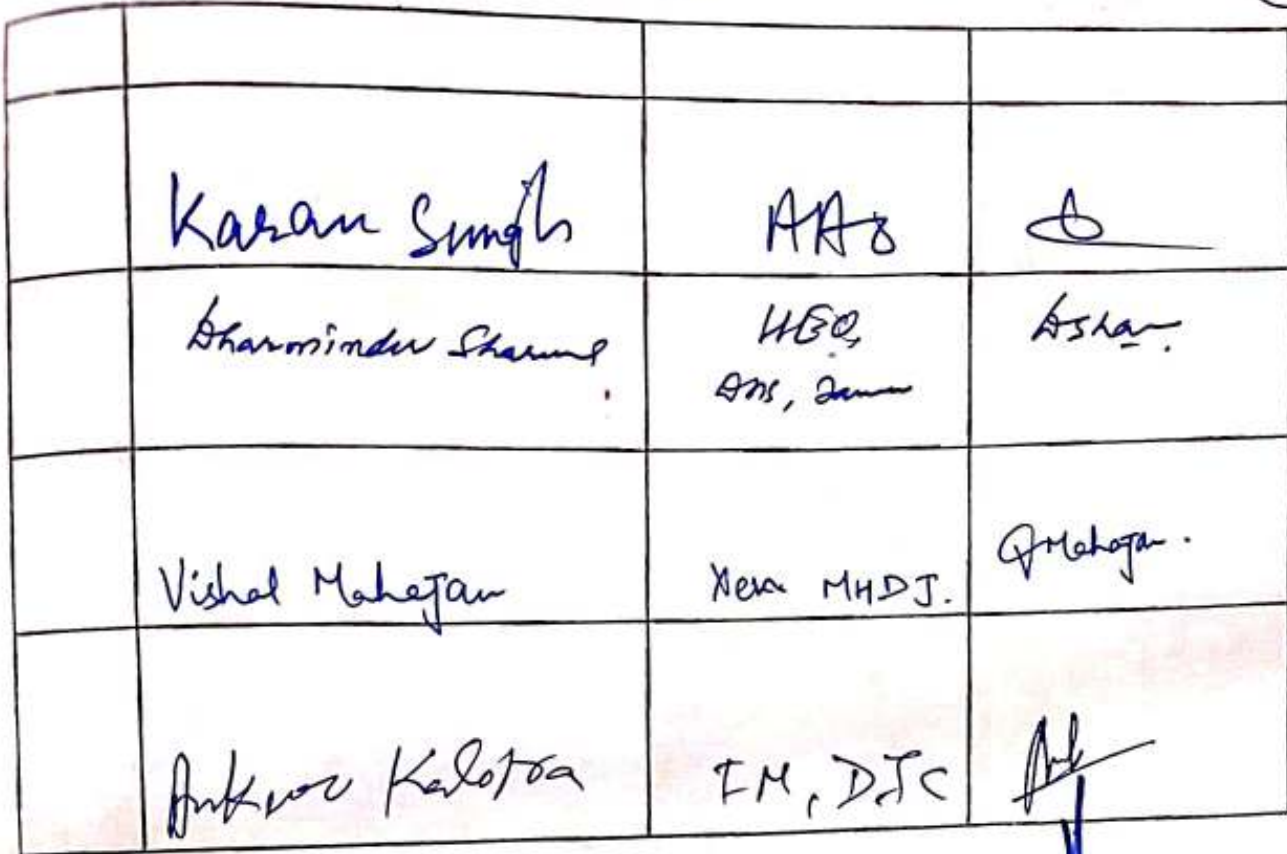 Karan Singh AAO
Dharminder Sharma HEO,
Vishal Mahajan MHDJ. Mahajan.
Ankur Kalotra IM, DIC